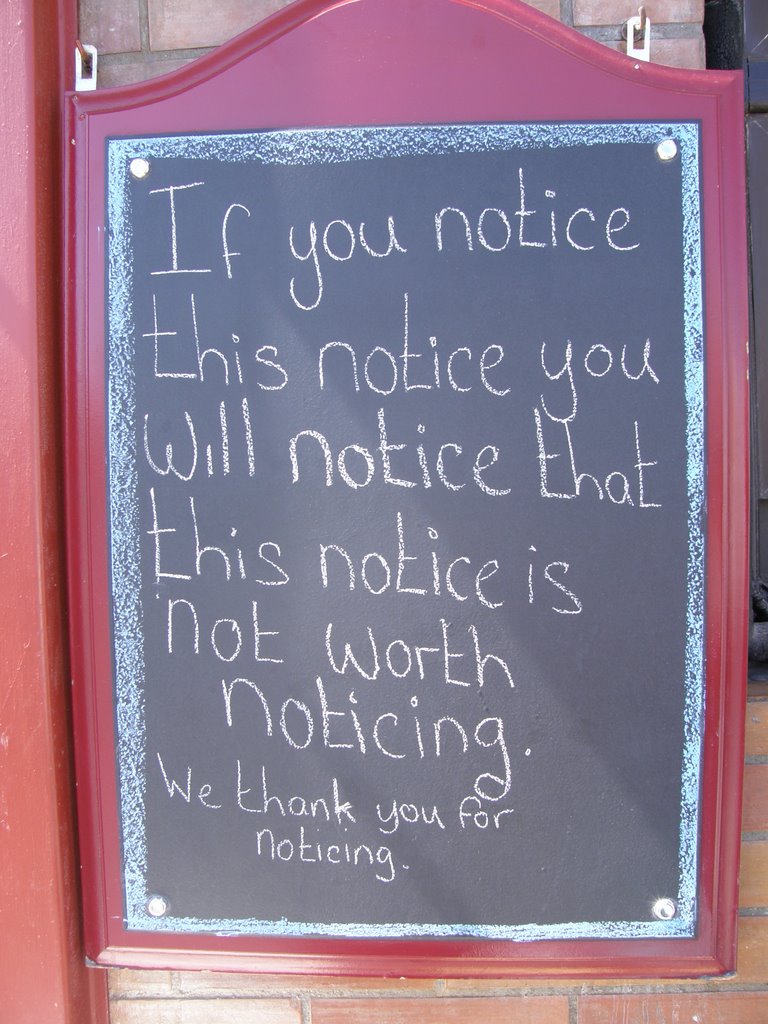 If you notice
this notice you
will notice that
this notice is
not worth
noticing.
We thank you for
noticing.